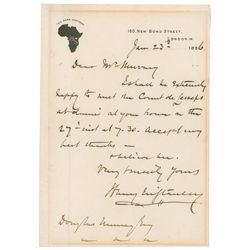 160, NEW BOND STREET,
LONDON. W.
Jan 23rd 1886
Dear Mr Murray
I shall be extremely
happy to meet the Count de Lesseps
at dinner at your house on the
27th inst at 7.30. Accept my
best thanks —
& believe me.
Very sincerely yours
Henry M Stanley
Douglas Murray Esq